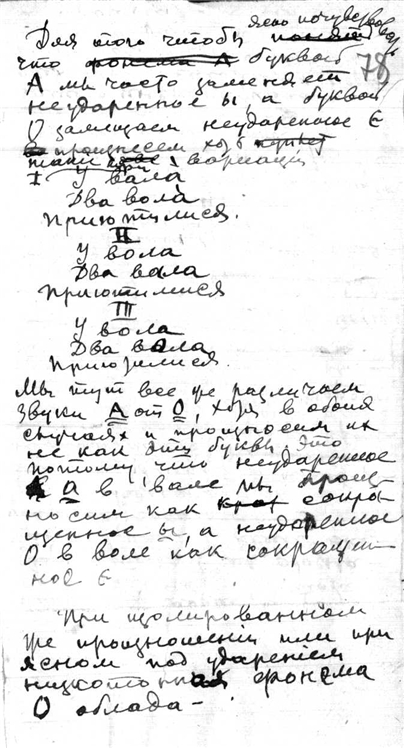 ясно почувствовать
Для того чтобы понять
78
что фонема А буквой
А мы часто заменяем
неударенное ы, а буквой
О замещаем неударенное Є
в произнесем хоть
такие три вариации
I У вала
Два вола
Приютилися.
II
У вола
Два вала
Приютилися
III
У вола
Два вала
Приютилися.
Мы тут все же различаем
звуки А от О, хотя в обоих
случаях и произносим их
не как эти буквы. Это
потому что неударенное
а в вале мы произ-
носим как сокра-
щенное ы, а неударенное
О в воле как сокращен-
ное Є
При изолированном
же произношении или при
ясном под ударением
низкотонная фонема
О облада-